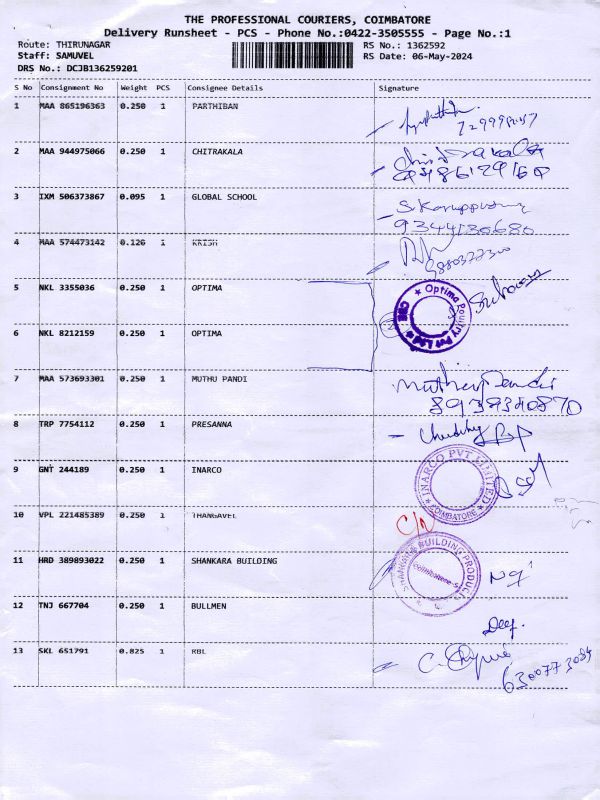 THE PROFESSIONAL COURIERS, COIMBATORE
Delivery Runsheet - PCS - Phone No.:0422-3505555 - Page No.:1
Route: THIRUNAGAR RS No.: 1362592
Staff: SAMUVEL RS Date: 06-May-2024
DRS No.: DCJB136259201
S No Consignment No Weight PCS Consignee Details Signature
1 MAA 865196363 0.250 1 PARTHIBAN
2 MAA 944975066 0.250 1 CHITRAKALA
3 IXM 506373867 0.095 1 GLOBAL SCHOOL
9344130680
4 MAA 574473142 0.126 1 KRISH
5 NKL 3355036 0.250 1 OPTIMA
Optima Poultry Pvt Ltd CBE
6 NKL 8212159 0.250 1 OPTIMA
7 MAA 573693301 0.250 1 MUTHU PANDI
8939340870
8 TRP 7754112 0.250 1 PRESANNA
9 GNT 244189 0.250 1 INARCO
INARCO PVT LIMITED COIMBATORE
10 VPL 221485389 0.250 1 THANGAVEL
11 HRD 389893022 0.250 1 SHANKARA BUILDING
SHANKARA BUILDING PRODUCTS Coimbatore
12 TNJ 667704 0.250 1 BULLMEN
13 SKL 651791 0.825 1 RBL